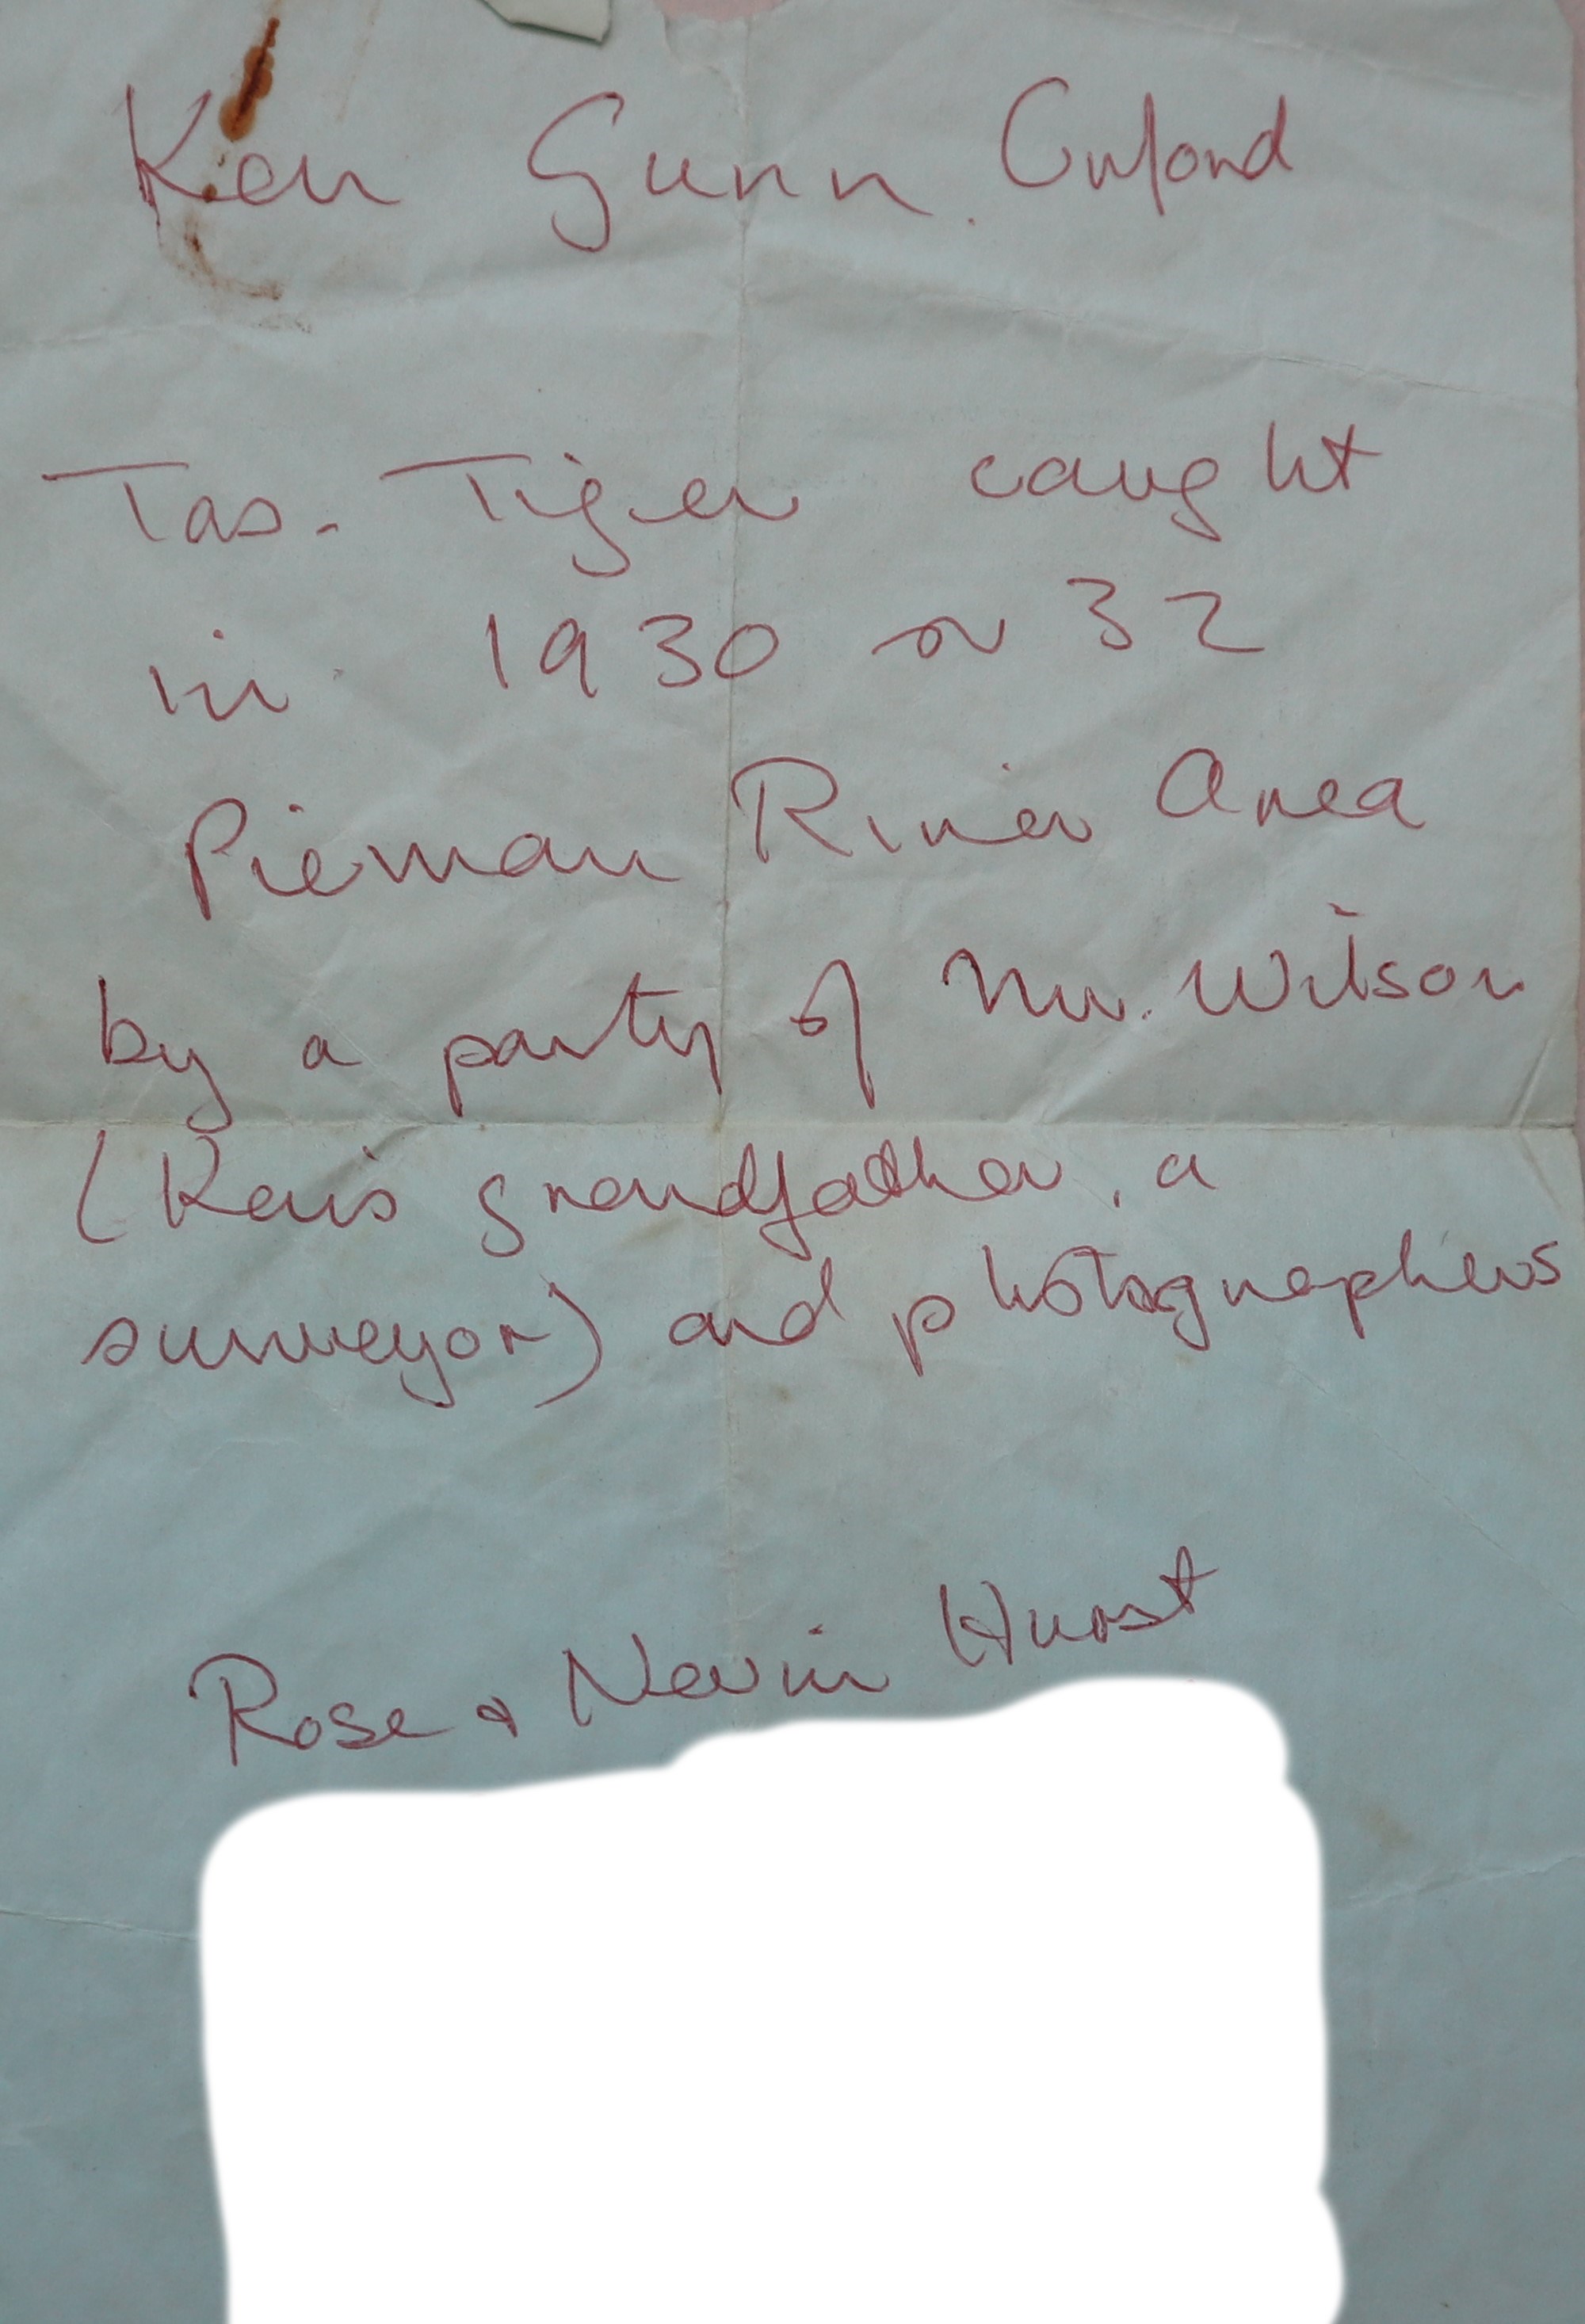 Ken Gunn. Orford
Tas. Tiger caught
in 1930 or 32
Pieman River Area
by a party of Mr. Wilson
(Ken's grandfather, a
surveyor) and photographers
Rose & Nevin Hurst